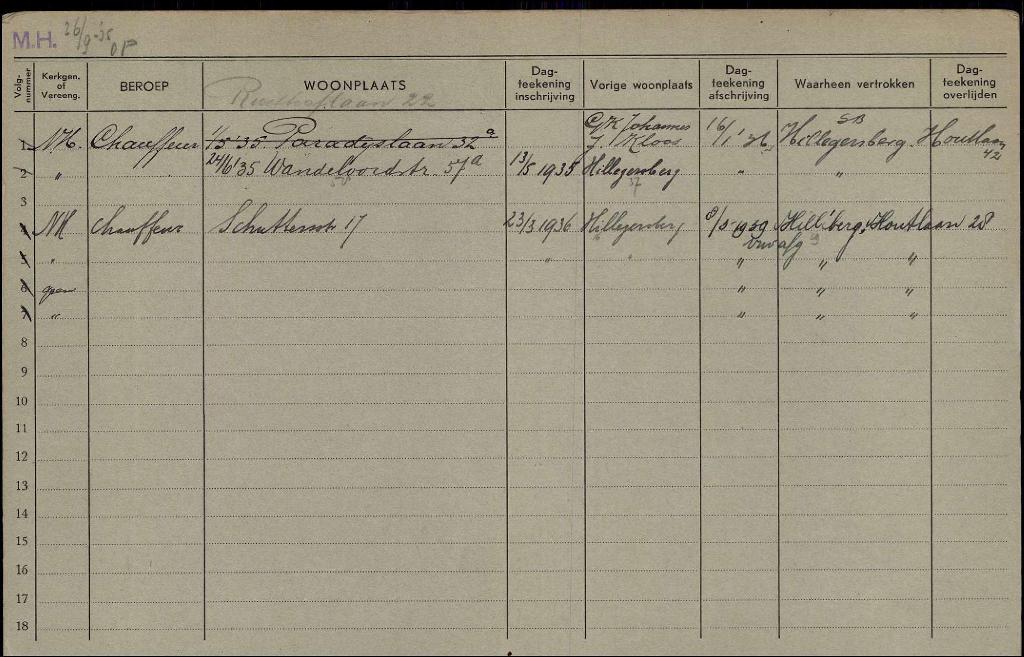 M.H. 26/9-35 OP
Volg-nummer Kerkgen. of Vereeng. BEROEP WOONPLAATS Dag-teekening inschrijving Vorige woonplaats Dag-teekening afschrijving Waarheen vertrokken Dag-teekening overlijden
laan 22
1 N.H. Chauffeur 1/5 '35 Paradyslaan 32a G/K Johannes J. Kloos 16/1 '36 SB Hillegersberg Houtlaan 42
2 " 24/6 '35 Wandeloordstr 57a 13/5 1935 Hillegersberg " "
37
3
4 NH Chauffeur Schuttersstr 17 23/3 1936 Hillegersberg 9/5-1939 Hill'berg, Houtlaan 28
5 " " " " " "
6 geen " " "
7 " " " "
8
9
10
11
12
13
14
15
16
17
18